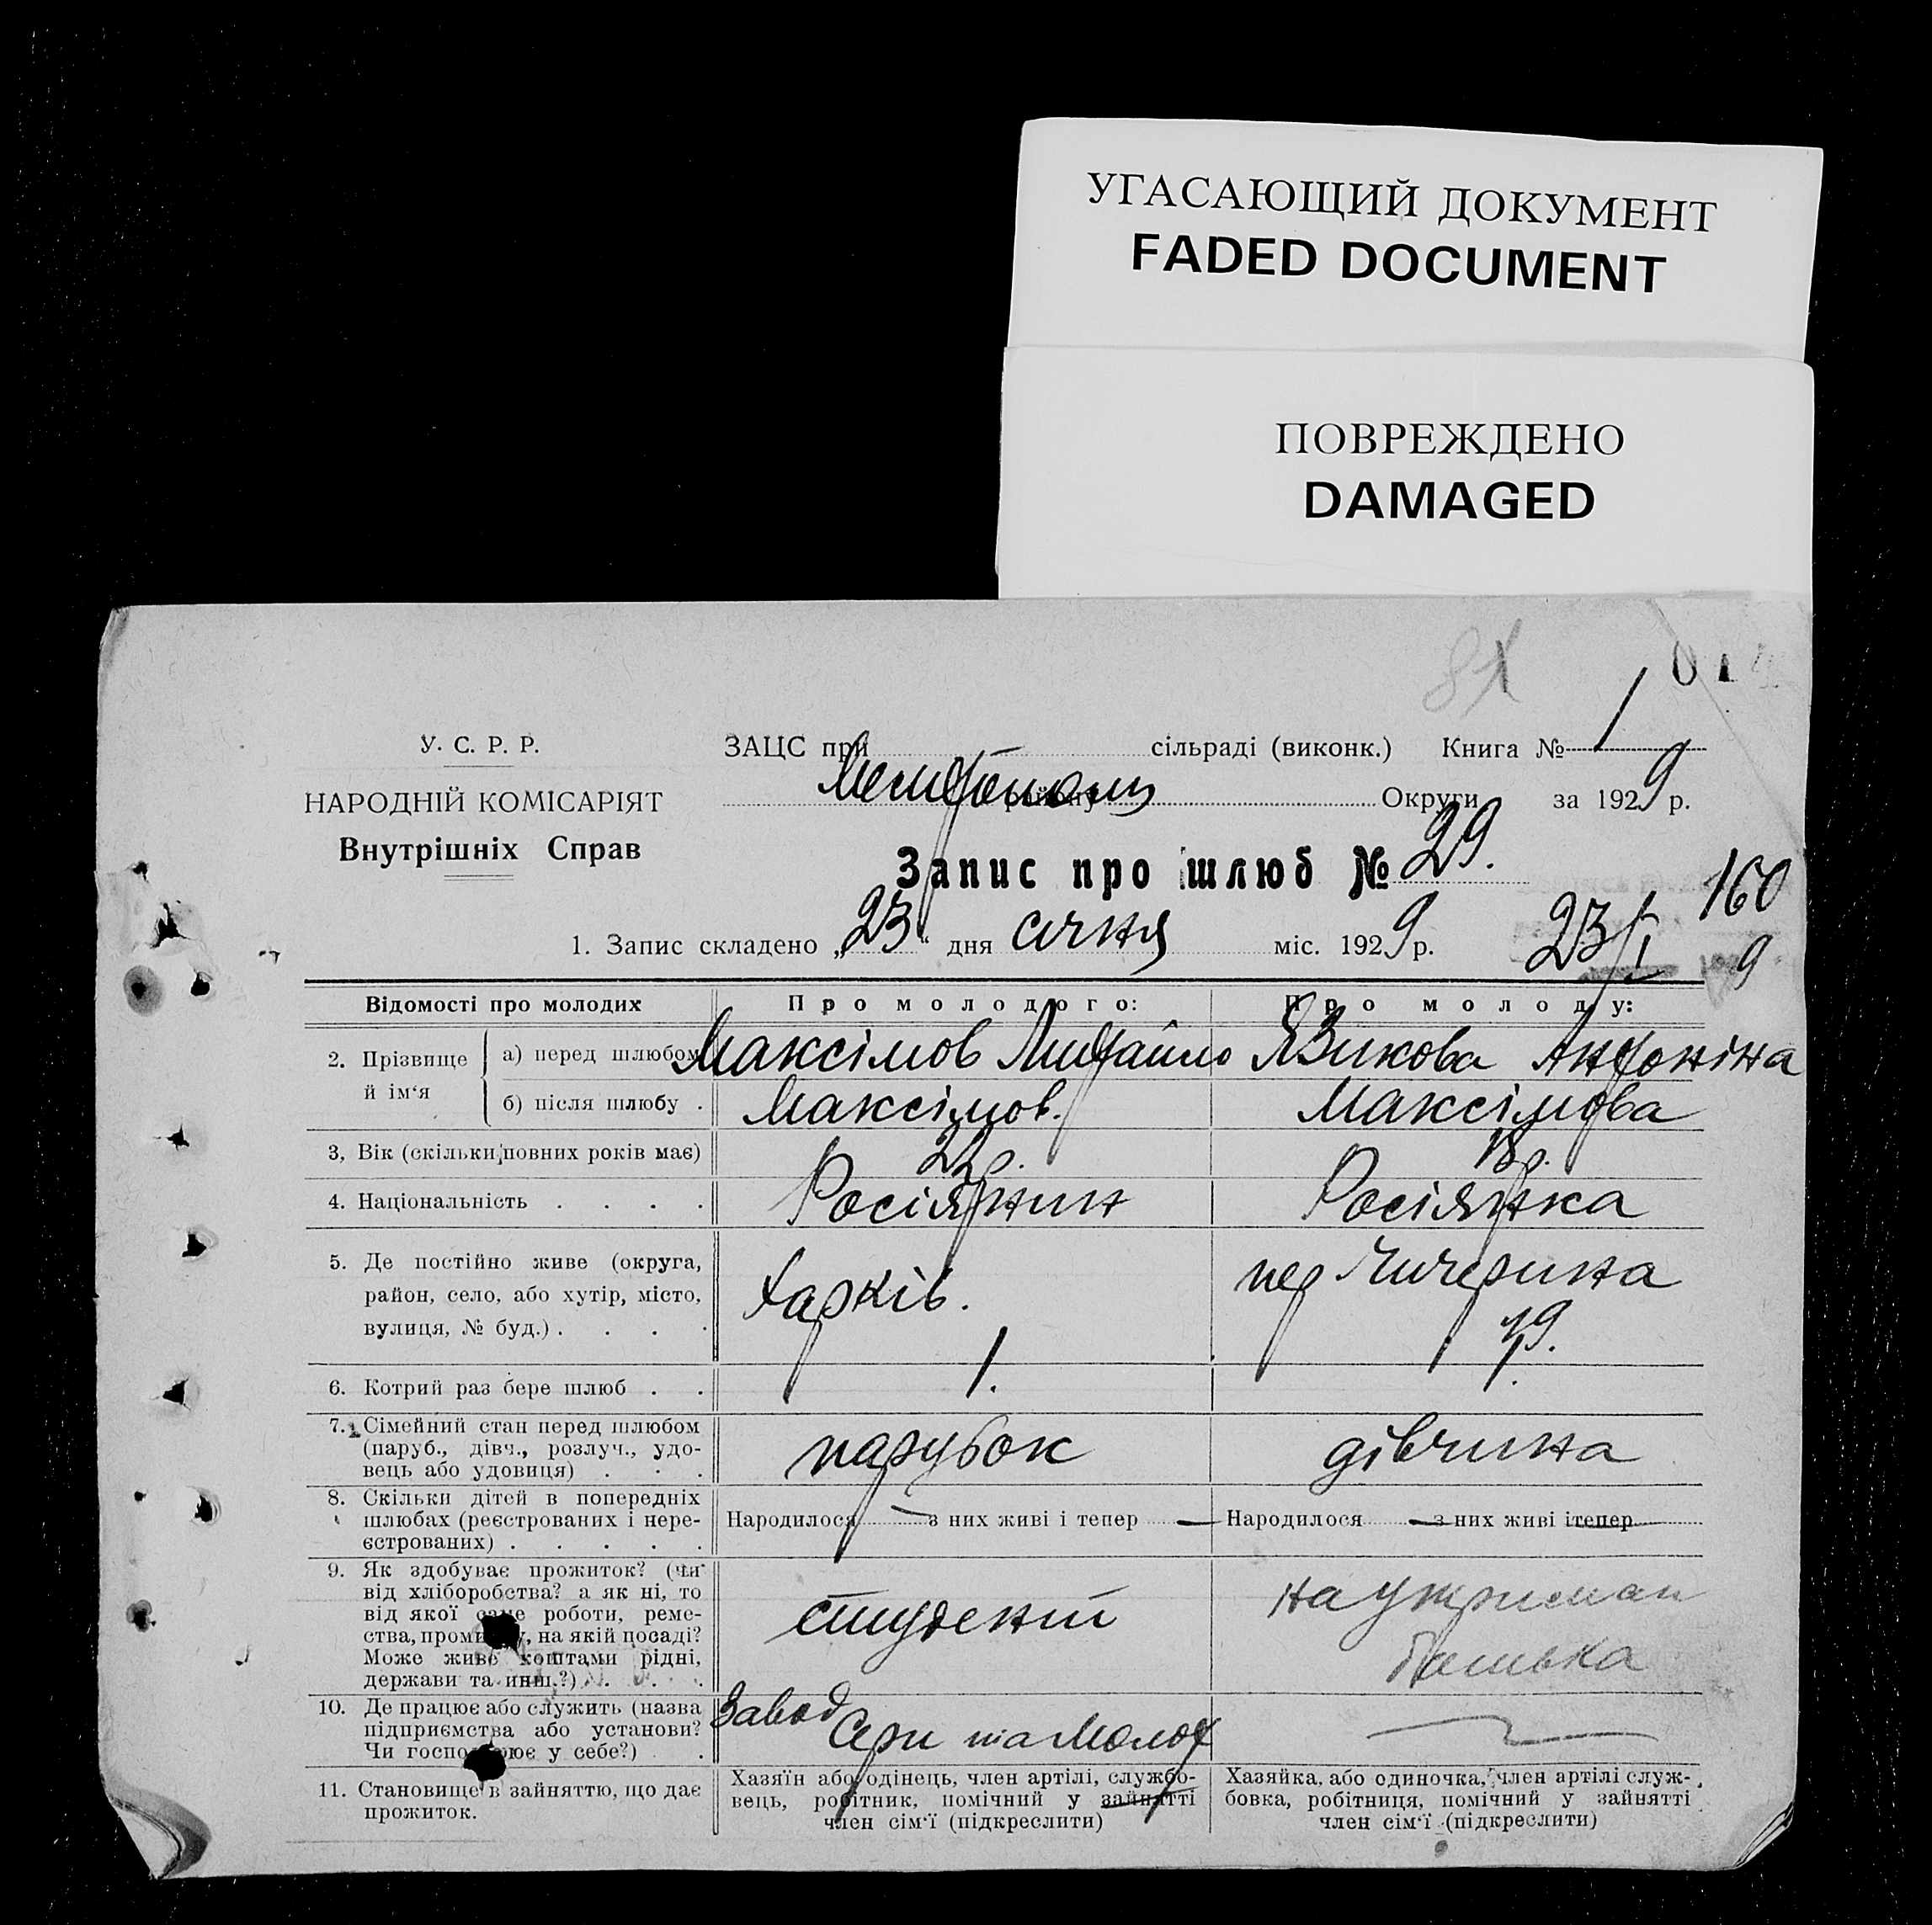 УГАСАЮЩИЙ ДОКУМЕНТ
FADED DOCUMENT
ПОВРЕЖДЕНО
DAMAGED
81
01
У. С. Р. Р.
НАРОДНІЙ КОМІСАРІЯТ
Внутрішніх Справ
ЗАЦС при сільраді (виконк.) Книга № 1
району Округи за 1929 р.
Запис про шлюб № 29.
160
1. Запис складено „23“ дня січня міс. 1929 р.
23/I 9
Відомості про молодих Про молодого: Про молоду:
2. Прізвище й ім‘я
а) перед шлюбом Максімов Михайло Язикова Антоніна
б) після шлюбу . Максімов. Максімова
3, Вік (скільки повних років має) 22 р. 18 р.
4. Національність . . . . Росіянин Росіянка
5. Де постійно живе (округа,
район, село, або хутір, місто,
вулиця, № буд.) . . . .
Харків.
пер Чичерина
19.
6. Котрий раз бере шлюб . . 1. 1.
7. Сімейний стан перед шлюбом
(паруб., дівч., розлуч., удо-
вець або удовиця) . . .
парубок дівчина
8. Скільки дітей в попередніх
шлюбах (реєстрованих і нере-
єстрованих) . . . . .
Народилося — з них живі і тепер —
Народилося — з них живі і тепер —
9. Як здобуває прожиток? (чи
від хліборобства? а як ні, то
від якої роботи, реме-
ства, на якій посаді?
Може живе коштами рідні,
держави та инш.?) . . .
студент
на утриман
батька
10. Де працює або служить (назва
підприємства або установи?
Чи у себе?) .
Завод
Серп та Молот
11. Становище в зайняттю, що дає
прожиток.
Хазяїн або одінець, член артілі, службо-
вець, робітник, помічний у зайнятті
член сім‘ї (підкреслити)
Хазяйка, або одиночка, член артілі служ-
бовка, робітниця, помічний у зайнятті
член сім‘ї (підкреслити)